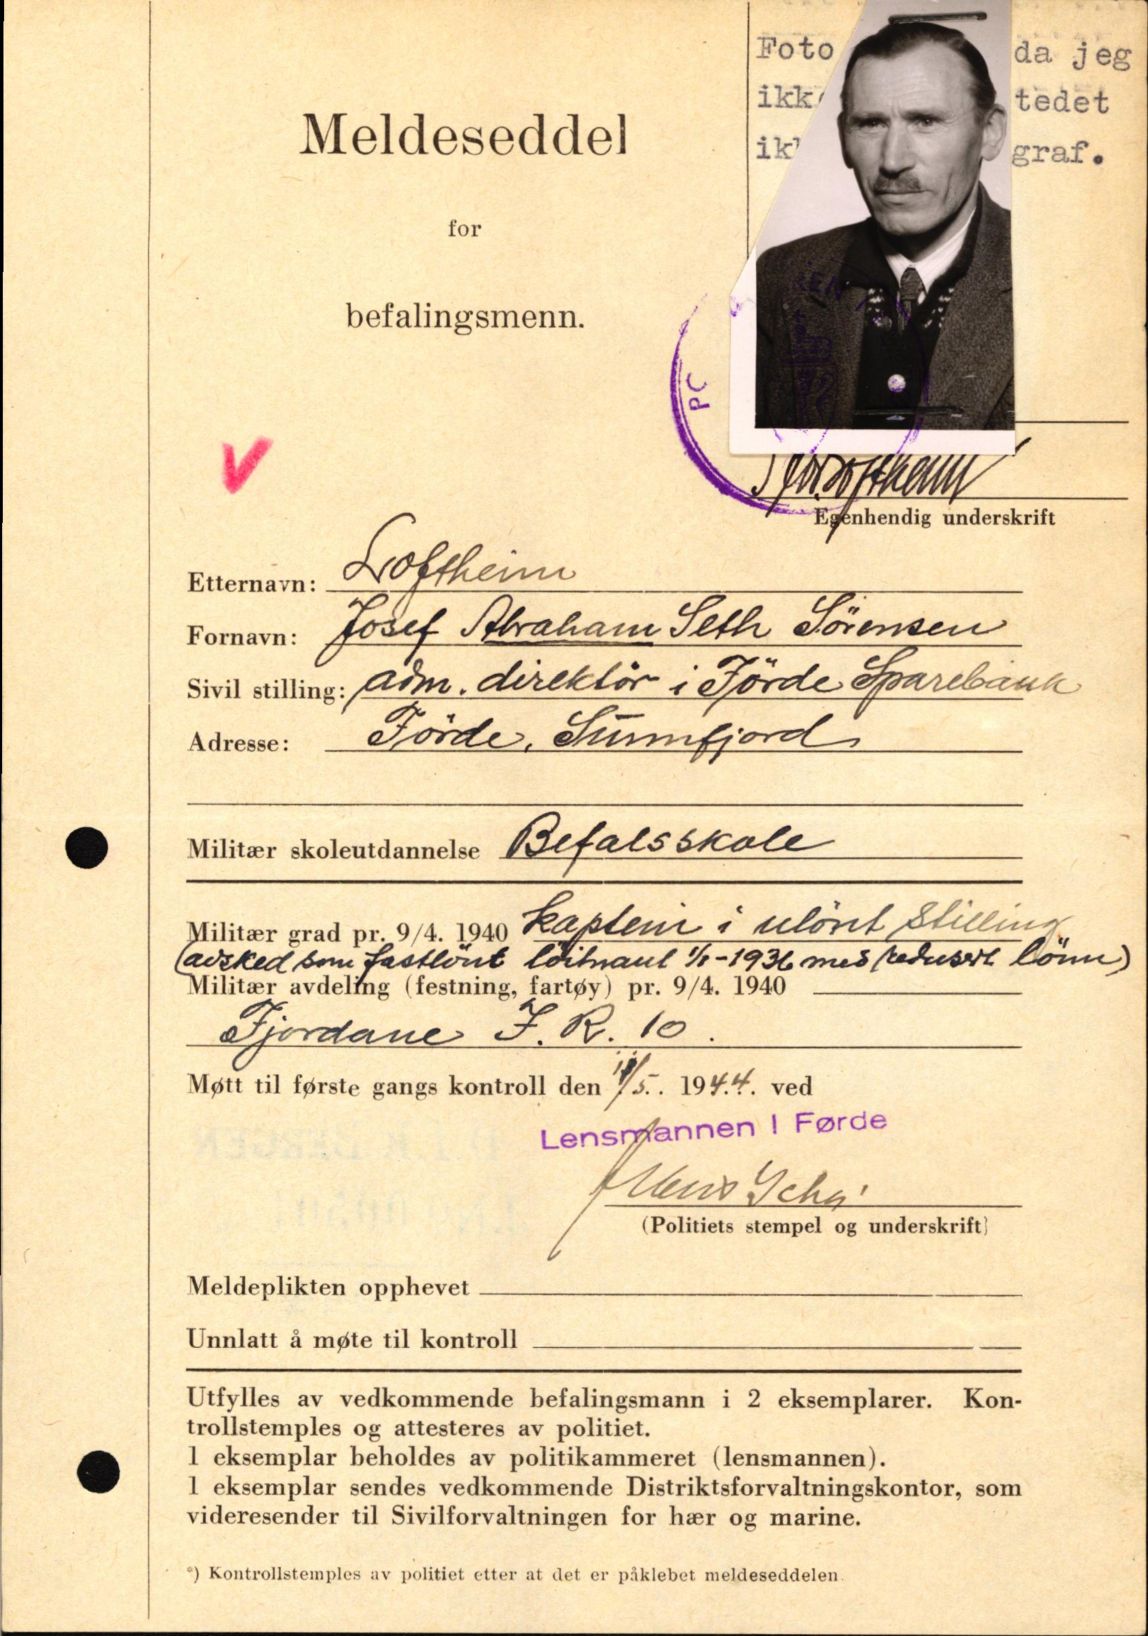 Foto da jeg
ikke tedet
ik graf.
Meldeseddel
for
befalingsmenn.
Egenhendig underskrift
Etternavn: Loftheim
Fornavn: Josef Abraham Seth Sörensen
Sivil stilling: adm. direktör i Förde Sparebank
Adresse: Förde, Sunnfjord
Militær skoleutdannelse Befalsskole
Militær grad pr. 9/4. 1940 kaptein i ulönt stilling
(avsked som fastlönt löitnant 1/1-1936 med redusert lönn)
Militær avdeling (festning, fartøy) pr. 9/4. 1940
Fjordane I. R. 10.
Møtt til første gangs kontroll den /5. 1944. ved
Lensmannen i Førde
(Politiets stempel og underskrift)
Meldeplikten opphevet
Unnlatt å møte til kontroll
Utfylles av vedkommende befalingsmann i 2 eksemplarer. Kon-
trollstemples og attesteres av politiet.
1 eksemplar beholdes av politikammeret (lensmannen).
1 eksemplar sendes vedkommende Distriktsforvaltningskontor, som
videresender til Sivilforvaltningen for hær og marine.
*) Kontrollstemples av politiet etter at det er påklebet meldeseddelen